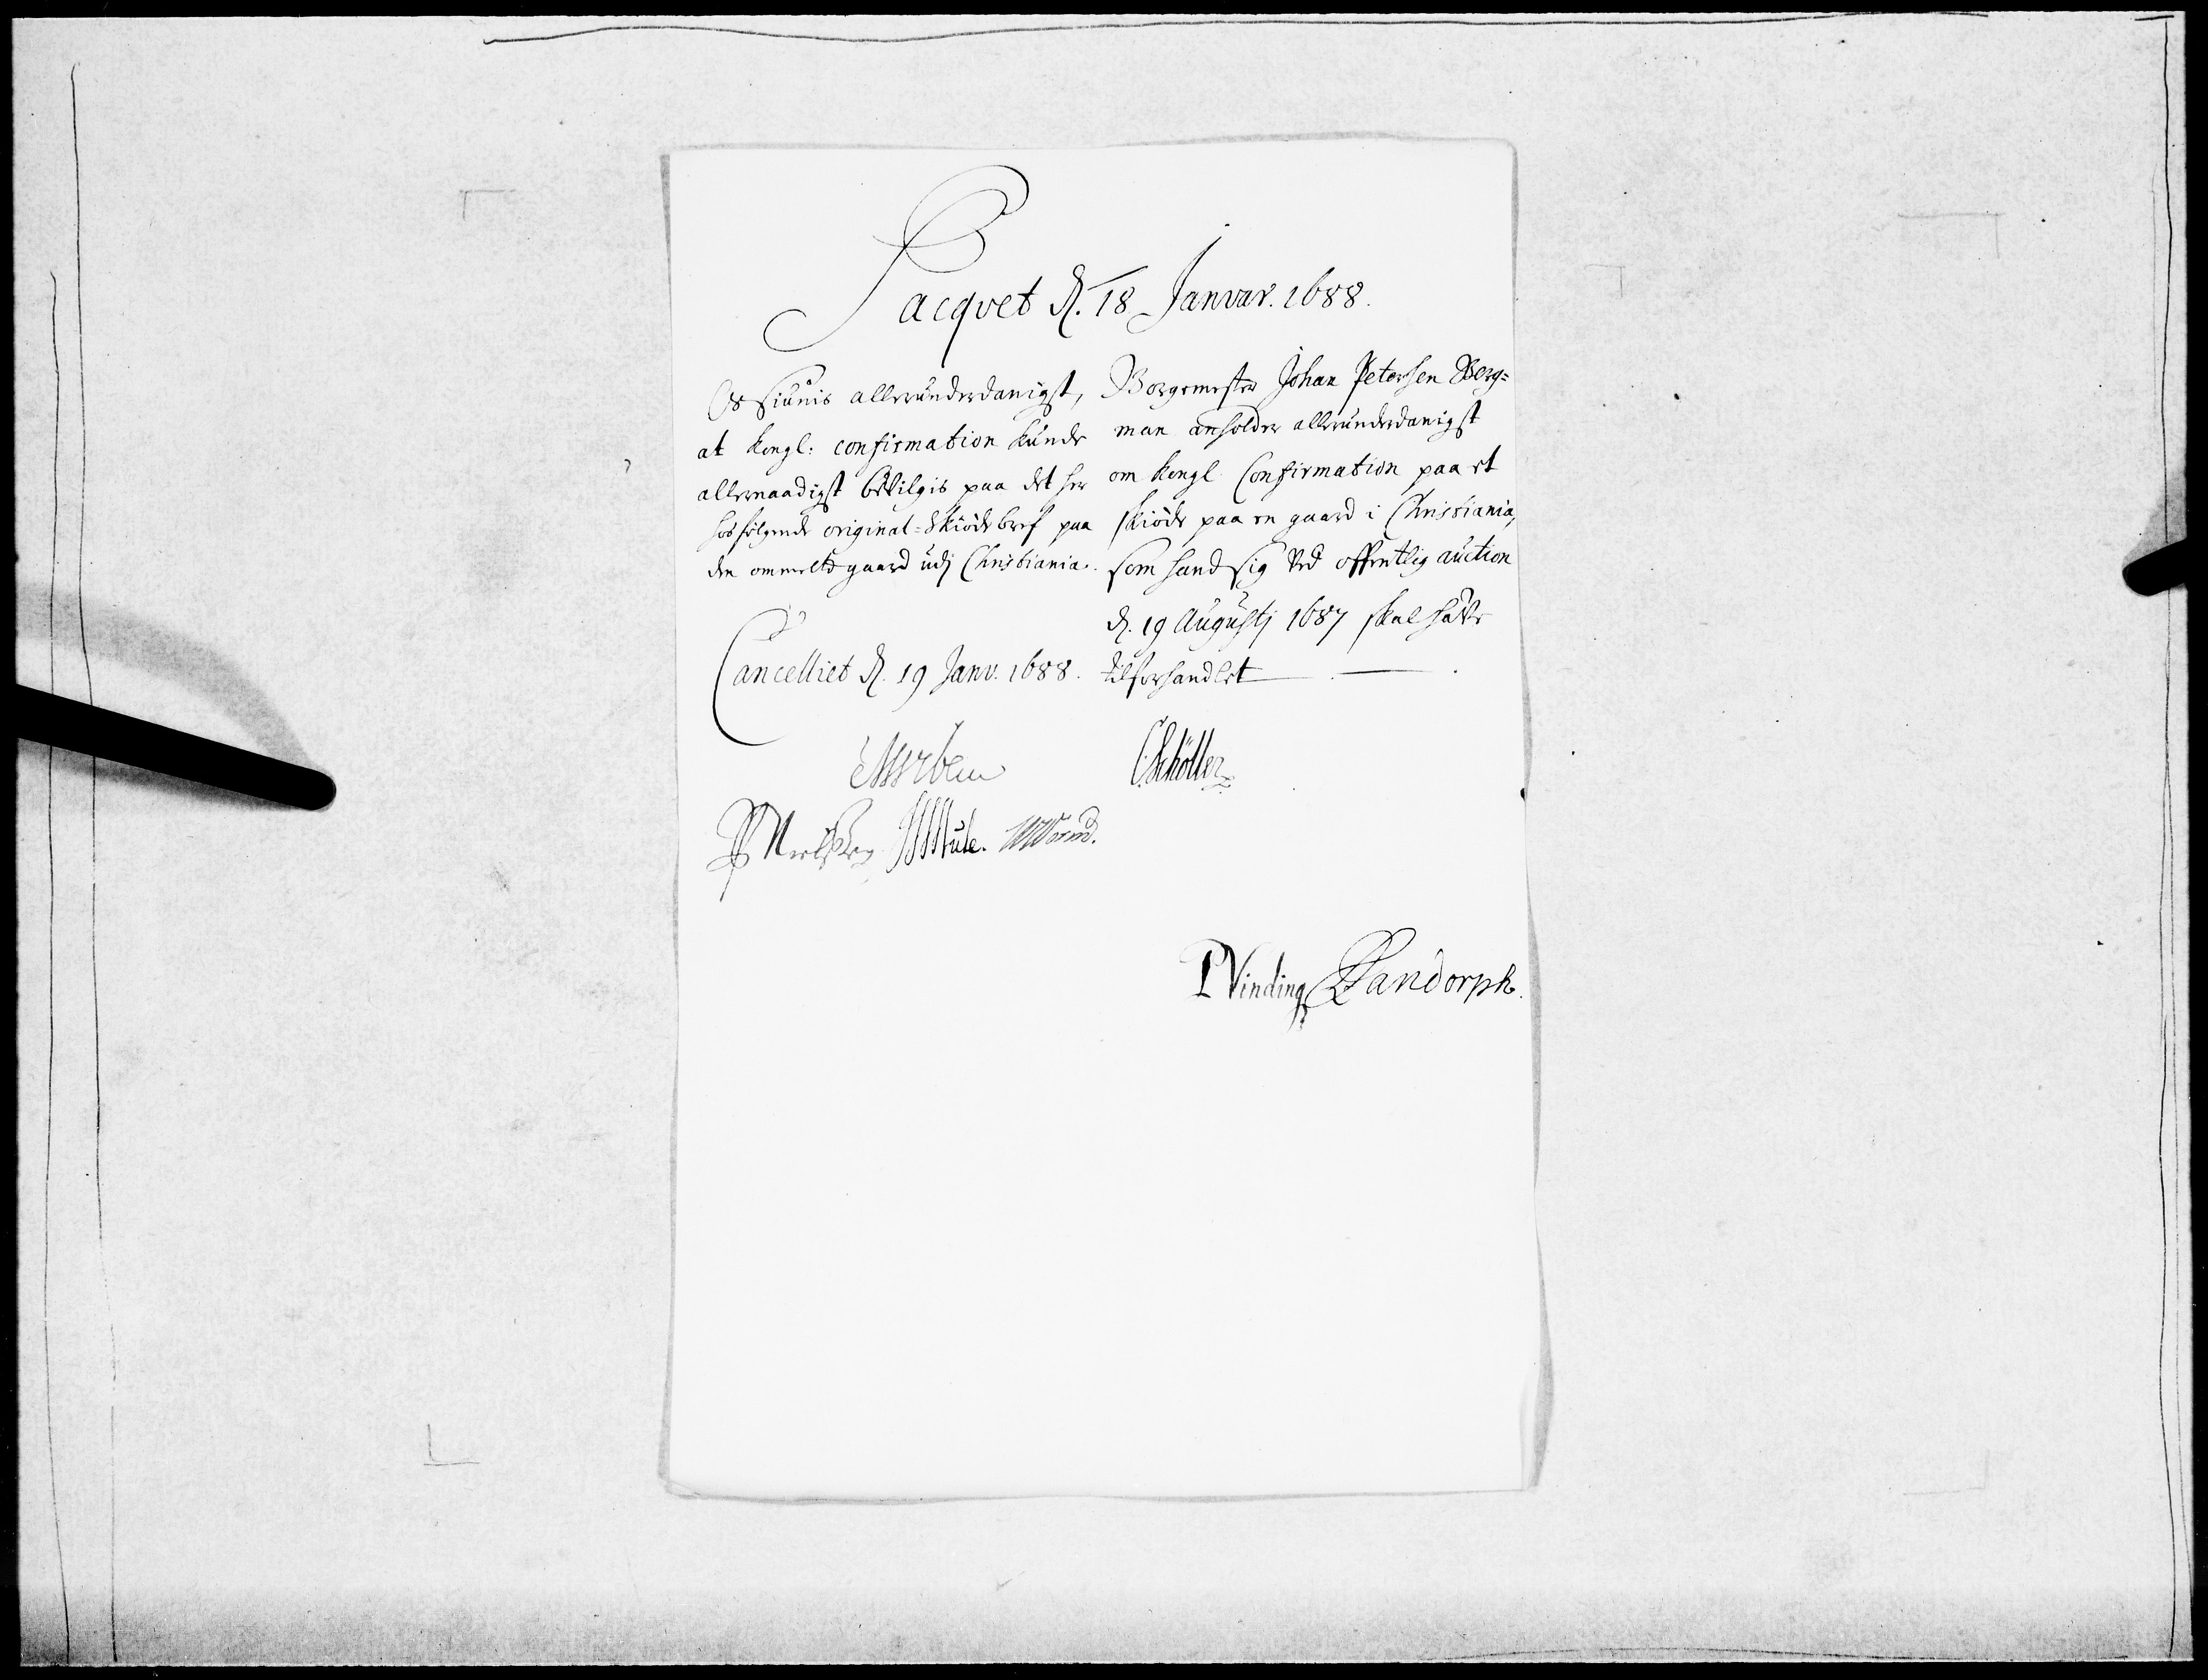 Pacqvet d. 18 Januar. 1688.
Os siünis allerunderdanigst,
at kongl: confirmation künde
allernaadigst bevilgis paa det her
hos følgende original-Skiødebref paa
den ommelte gaard udj Christiania.
Cancelliet d. 19 Janv. 1688.
Borgemester Johan Petersen Berg=
man anholder allerunderdanigst
om kongl Confirmation paa et
skiöde paa en gaard i Christiania,
som hand sig ved offentlig auction
d. 19 Augustj 1687 skal hafve
tilforhandlet
CSchöller
WWorm.
PVinding
Sandorph.